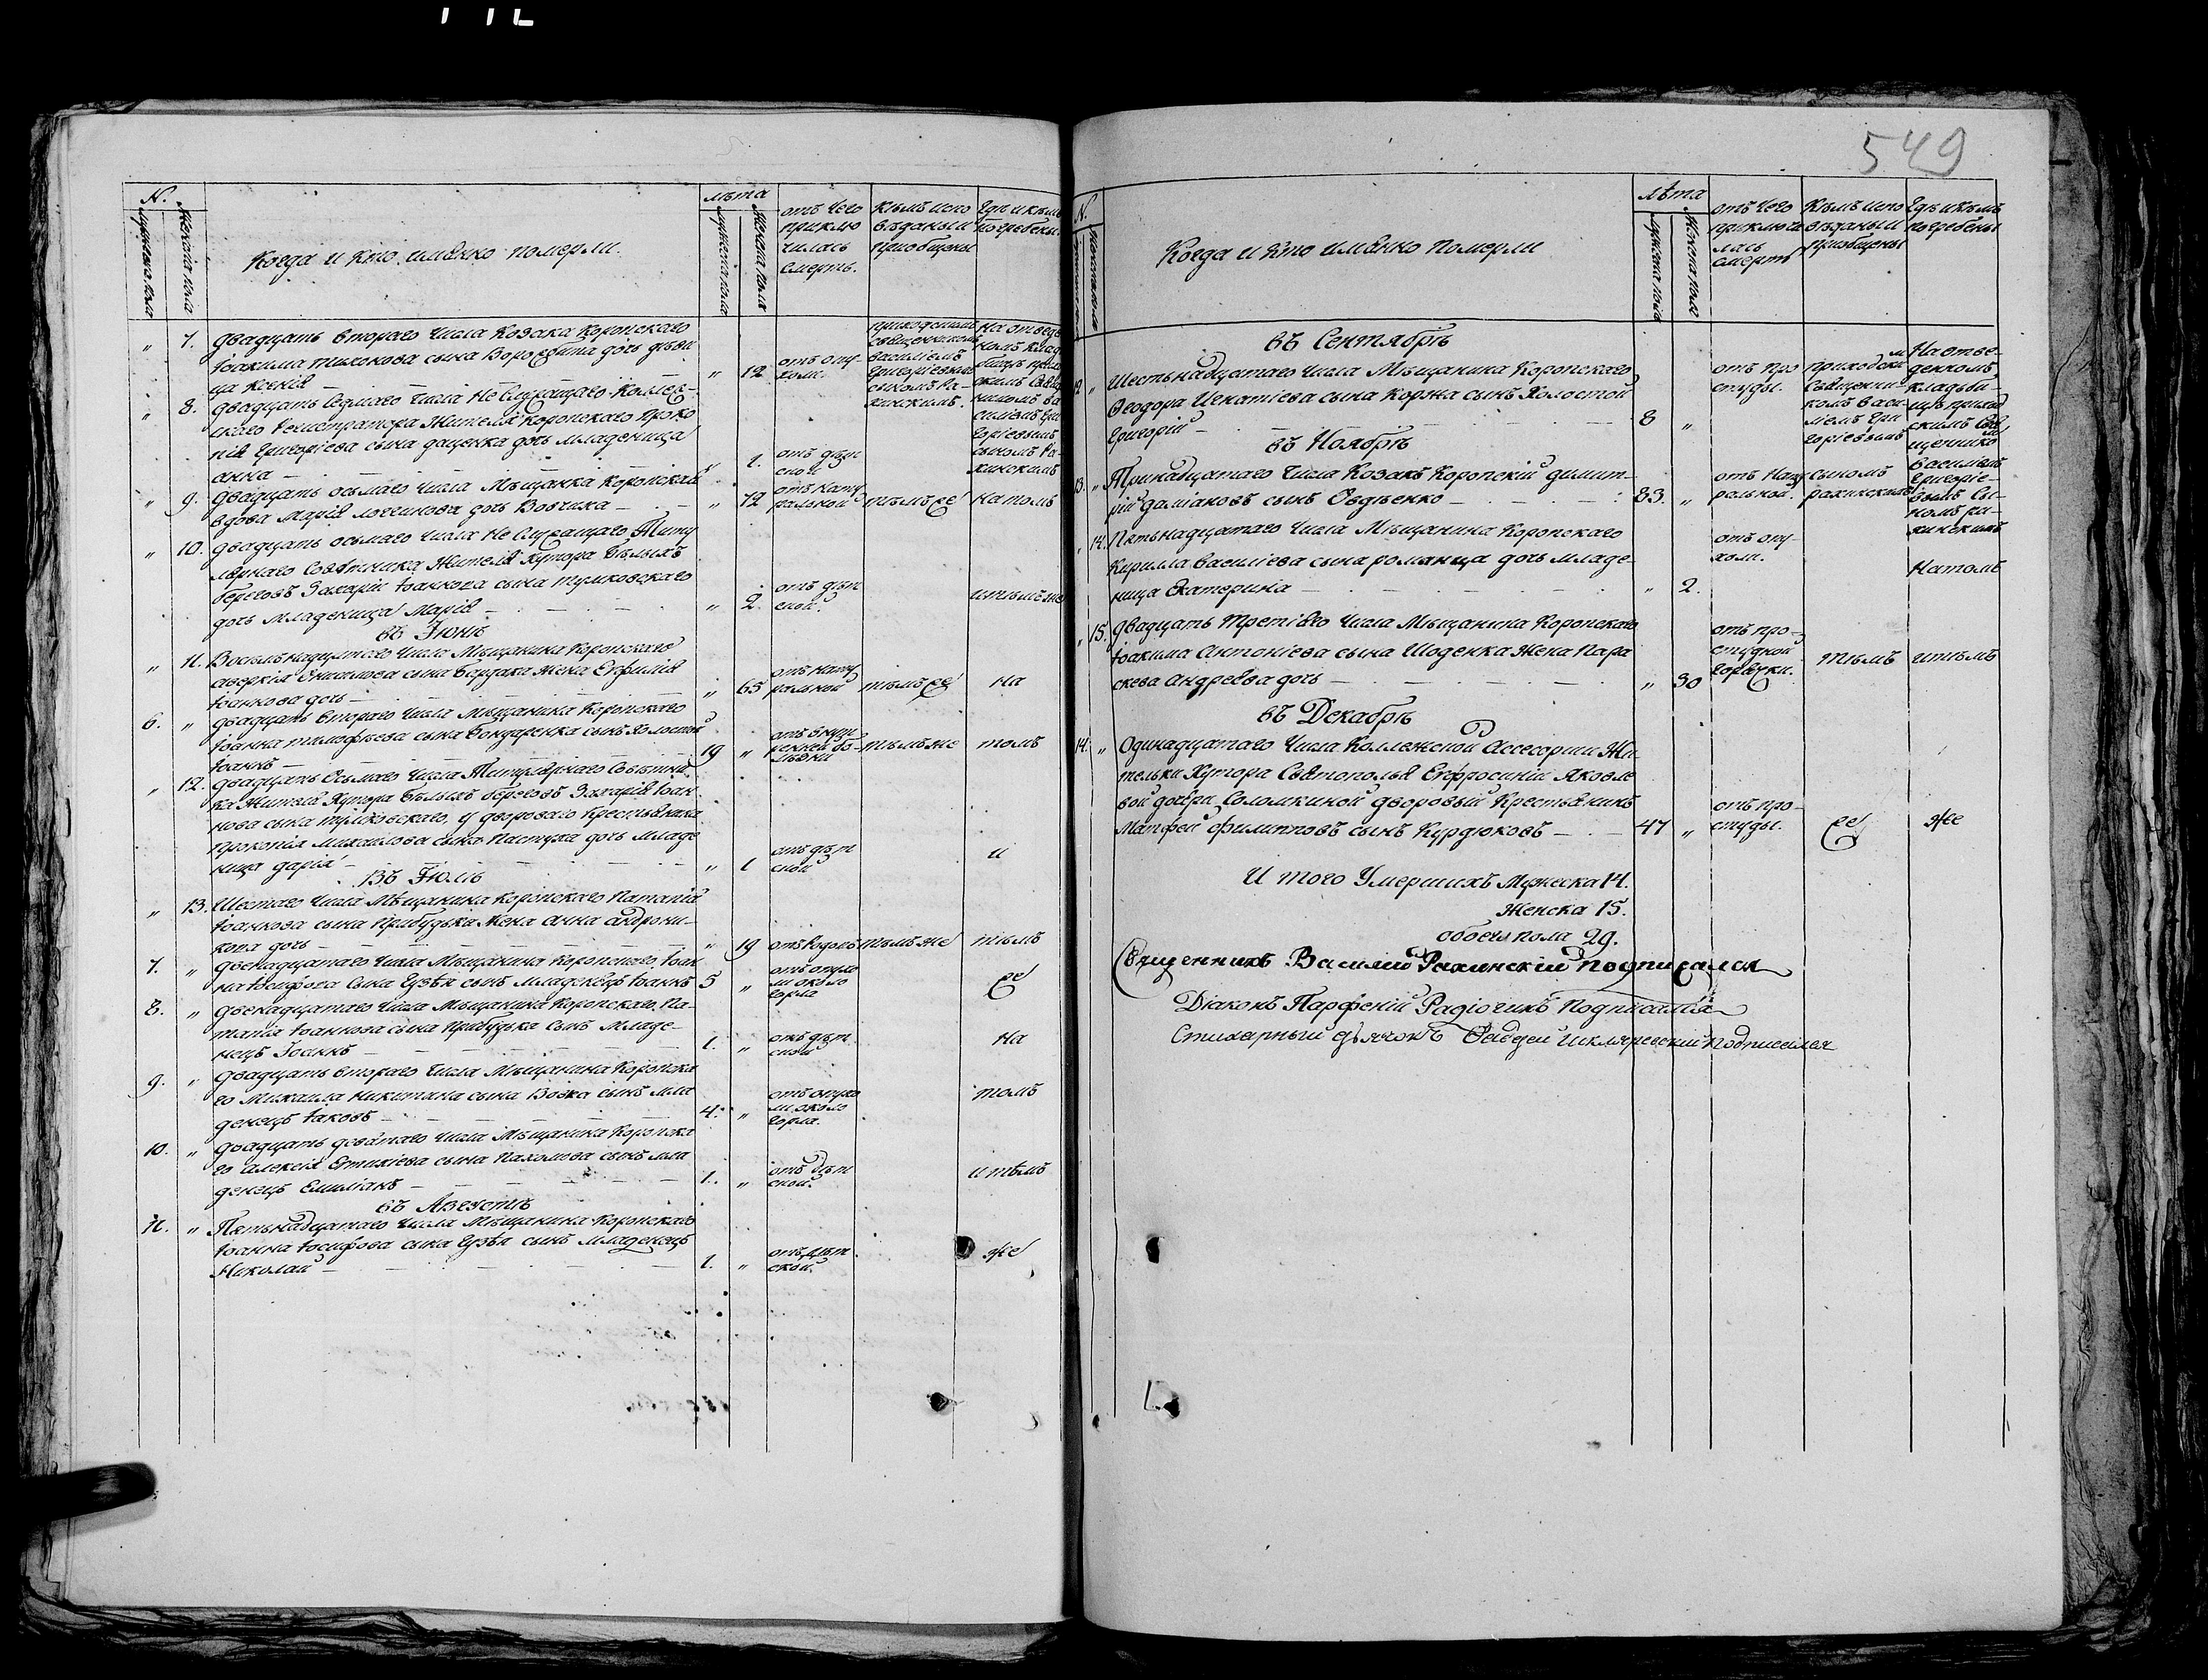 N.
мужеска пола
женска пола
Когда и кто имянно померли.
лѣта
мужеска пола
женска пола
отъ чего приклю чилась смерть.
кѣмъ испо вѣданы и приобщены
гдѣ и кѣмъ погребены
" 7. двадцать втораго числа Козака Коропскаго
Іоакима Тихонова сына Ворожбита дочь дѣви
ца Ксенія — " 12 отъ опу холи.
приходскимъ священникомъ василіемъ Григоріевымъ сыномъ Ра- хинскимъ.
На отведе номъ клад бищѣ прихо скимъ свящ никомъ ва силіемъ Гри горіевымъ сыномъ Ра- хинскимъ
" 8. двадцать седмаго числа Не служащаго Коллеж-
скаго регистратора Жителя Коропскаго Проко
пія Григоріева сына даценка дочь младеница
анна — " 1. отъ дѣт ской
" 9. двадцать осьмаго числа Мѣщанка Коропская
вдова Марія Логинова дочь Вовчиха — " 72 отъ нату ральной тѣмъ же на томъ
" 10. двадцать осьмаго числа Не служащаго Титу
лярнаго Совѣтника Жителя Хутора Бѣлыхъ
береговъ Захаріи Іоаннова сына тумковскаго
дочь младеница Марія — " 2. отъ дѣт ской. и тѣмъ же
въ Іюнѣ
" 11. Восемьнадцатаго числа Мѣщанина Коропскаго
аверкія Ермолова сына Бердака жена Евфимія
Іоаннова дочь — " 65 отъ нату ральной тѣмъ же на
6. " двадцать втораго числа Мѣщанина Коропскаго
Іоанна тимофѣева сына Бондаренка сынъ холостой
Іоаннъ — 19 " отъ внут ренней бо- лѣзни тѣмъ же томъ
" 12. двадцать Осьмаго числа Титулярнаго Совѣтни-
ка Жителя Хутора Бѣлыхъ береговъ Захарія Іоан
нова сына тумковскаго, у дворового крестьянина
Прокопія михаилова сына Пастуха дочь младе
ница дарія — " 1 отъ дѣт ской и
Въ Іюлѣ
" 13. Шестаго числа Мѣщанина Коропскаго Патапія
Іоаннова сына Прибудька жена анна андрони-
кова дочь — " 19 отъ родовъ тѣмъ же тѣмъ
7. " двенадцатаго числа Мѣщанина Коропскаго Іоан
на Іосифова сына Гузѣя сынъ младенецъ Іоаннъ 5 " отъ опухо ли около горла же
8. " двенадцатаго числа Мѣщанина Коропскаго Па-
тапія Іоаннова сына Прибудька сынъ младе-
нецъ Іоаннъ — 1. " отъ дѣт ской на
9. " двадцать втораго числа Мѣщанина Коропска
го Михаила Никитина сына Вовка сынъ мла
денецъ Іаковъ — 4. " отъ опухо ли около горла. томъ
10. " двадцать девятаго числа Мѣщанина Коропска
го алексія Евтихіева сына Пахомова сынъ мла
денецъ Емиліанъ — 1. " отъ дѣт ской. и тѣмъ
въ Августѣ
11. " Пятьнадцатаго числа Мѣщанина Коропскаго
Іоанна Іосифова сына Гузѣя сынъ младенецъ
Николай — 1. " отъ дѣт ской. же
549
N.
Когда и кто имянно померли
лѣта
мужеска пола
женска пола
отъ чего приключи лась смерть
кѣмъ испо вѣданы и приобщены
гдѣ и кѣмъ погребены
въ Сентябрѣ
12 " Шестьнадцатаго числа Мѣщанина Коропскаго
Феодора Игнатіева сына Коржа сынъ холостой
Григорій — 8 " отъ про студы.
приходским священни- комъ васи- ліемъ Гри горіевымъ сыномъ рахинскимъ
На отве- денномъ кладби- щѣ приход скимъ свя щеннико василіемъ Григоріе- вымъ Сы- номъ ра- хинскимъ
въ Ноябрѣ
13. " Тринадцатаго числа Козакъ Коропскій димит-
рій даміановъ сынъ Овдѣенко — 83. " отъ нату ральной.
" 14. Пятьнадцатаго числа Мѣщанина Коропскаго
Кирилла василіева сына романца дочь младе-
ница Екатерина — " 2. отъ опу- холи. На томъ
" 15. двадцать третіяго числа Мѣщанина Коропскаго
Іоакима Антоніева сына Шоденка жена Пара
скева андреева дочь — " 30 отъ про- студной горячки. тѣмъ и тѣмъ
въ Декабрѣ
14. " Одинадцатаго числа Коллежской Ассесорши Жи-
тельки Хутора Святополья Евфросиніи Яковле
вой дочери Соломкиной дворовый Крестьянинъ
Матфей Филипповъ сынъ Курдюковъ — 47 " отъ про- студы. же же
И того Умершихъ Мужеска 14.
Женска 15.
обоего пола 29.
Священникъ Василій Рахинскій подписался
Діаконъ Парфеній Радіочинъ Подписался
Стихарный дьячокъ Фаддей Шкляревскій подписался